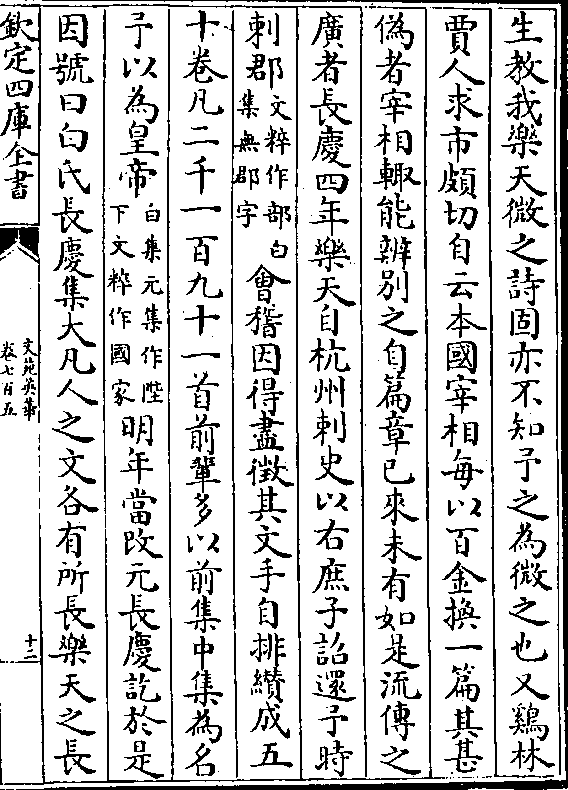 生教我樂天微之詩固亦不知予之為微之也又鷄林
賈人求市頗切自云本國宰相每以百金換一篇其甚
偽者宰相輙能辨別之自篇章已來未有如是流傳之
廣者長慶四年樂天自杭州刺史以右庶子詔還予時
刺郡文粹作部白集無郡字會稽因得盡徵其文手自排纘成五
十卷凡二千一百九十一首前輩多以前集中集為名
予以為皇帝白集元集作陛下文粹作國家明年當改元長慶訖於是
因號曰白氏長慶集大凡人之文各有所長樂天之長
欽定四庫全書
文苑英華
卷七百五
十二